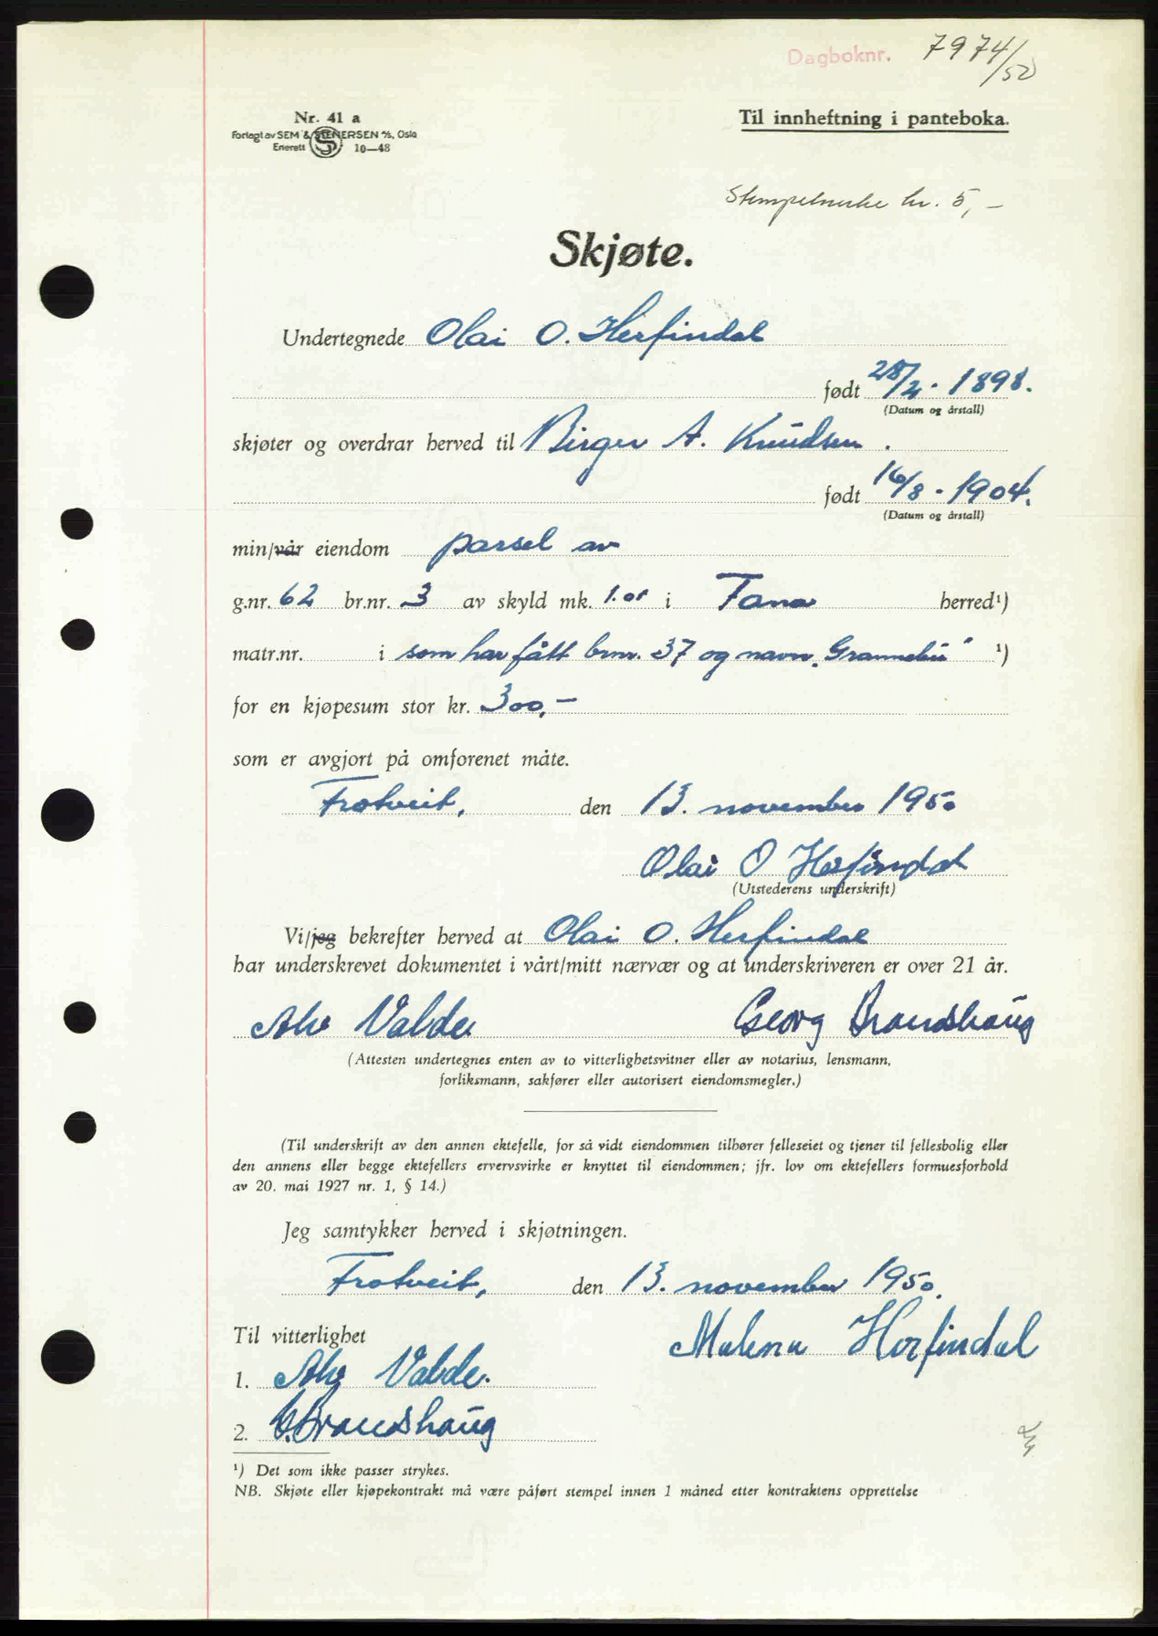 Dagboknr. 7974/50
Nr. 41 a
Forlagt av SEM & STENERSEN A/S, Oslo
Enerett 10—48
Til innheftning i panteboka.
Stempelmerke kr. 5,-
Skjøte.
Undertegnede Olai O. Herfindal
født 28/2 - 1898.
(Datum og årstall)
skjøter og overdrar herved til Birger A. Knudsen.
født 16/8 - 1904.
(Datum og årstall)
min/vår eiendom parsel av
g.nr. 62 br.nr. 3 av skyld mk. 1.01 i Fana herred¹)
matr.nr. i som har fått brnr. 37 og navn „Grannebu" ¹)
for en kjøpesum stor kr. 300,-
som er avgjort på omforenet måte.
Frotveit, den 13. november 1950
Olai O Herfindal
(Utstederens underskrift)
Vi/jeg bekrefter herved at Olai O. Herfindal
har underskrevet dokumentet i vårt/mitt nærvær og at underskriveren er over 21 år.
Valde Georg Brandshaug
(Attesten undertegnes enten av to vitterlighetsvitner eller av notarius, lensmann,
forliksmann, sakfører eller autorisert eiendomsmegler.)
(Til underskrift av den annen ektefelle, for så vidt eiendommen tilhører felleseiet og tjener til fellesbolig eller
den annens eller begge ektefellers ervervsvirke er knyttet til eiendommen; jfr. lov om ektefellers formuesforhold
av 20. mai 1927 nr. 1, § 14.)
Jeg samtykker herved i skjøtningen.
Frotveit, den 13. november 1950.
Til vitterlighet Malena Herfindal
1. Valde.
2. G. Brandshaug
¹) Det som ikke passer strykes.
NB. Skjøte eller kjøpekontrakt må være påført stempel innen 1 måned etter kontraktens opprettelse